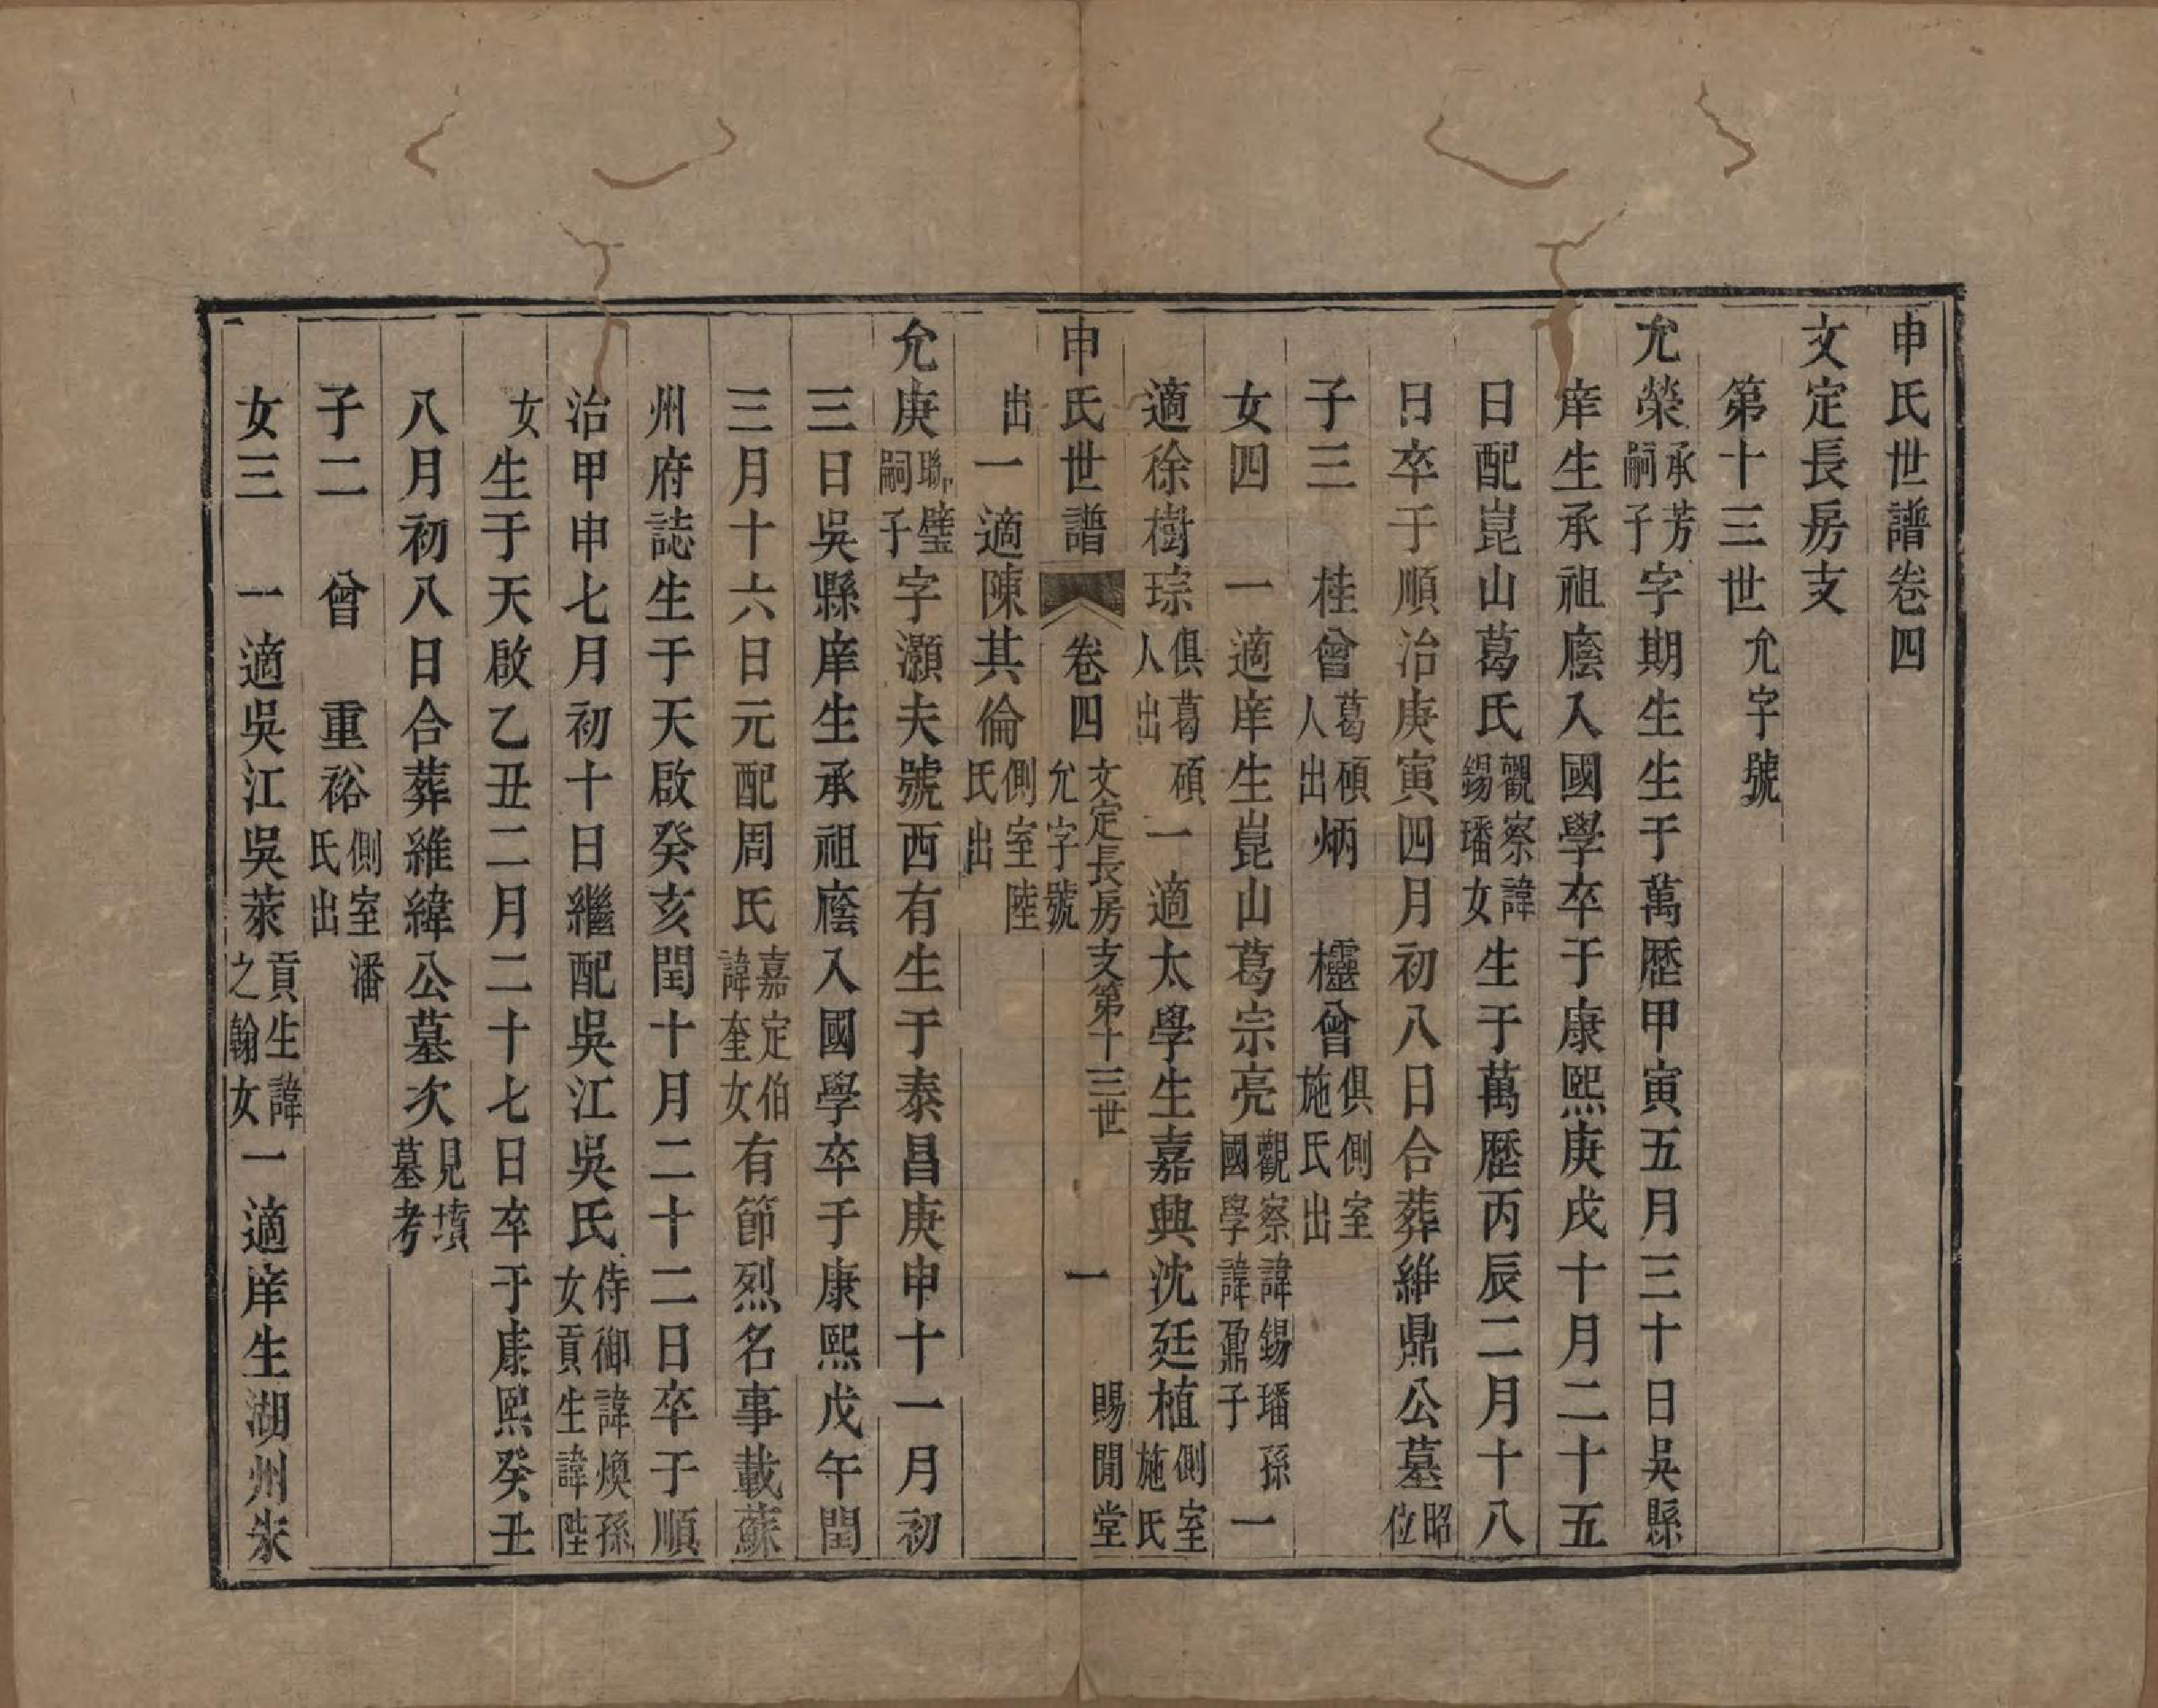 申氏世譜卷四
文定長房支
第十三世允字號
允榮承芳嗣子字期生生于萬歷甲寅五月三十日吳縣
庠生承祖廕入國學卒于康熙庚戌十月二十五
日配崑山葛氏觀察諱錫璠女生于萬歷丙辰二月十八
日卒于順治庚寅四月初八日合葬維鼎公墓昭位
子三　桂曾葛碩人出　炳　櫺曾俱側室施氏出
女四　一適庠生崑山葛宗亮觀察諱錫璠孫國學諱鼐子一
適徐樹琮俱葛碩人出一適太學生嘉興沈廷植側室施氏
申氏世譜　卷四　文定長房支第十三世允字號　一　賜閒堂
出一適陳其倫側室陸氏出
允庚聯璧嗣子字灝夫號西有生于泰昌庚申十一月初
三日吳縣庠生承祖廕入國學卒于康熙戊午閏
三月十六日元配周氏嘉定伯諱奎女有節烈名事載蘇
州府誌生于天啟癸亥閏十月二十二日卒于順
治甲申七月初十日繼配吳江吳氏侍御諱煥孫女貢生諱陞
女生于天啟乙丑二月二十七日卒于康熙癸丑
八月初八日合葬維緯公墓次見墳墓考
子二　曾　重裕側室潘氏出
女三　一適吳江吳萊貢生諱之翰女一適庠生湖州朱